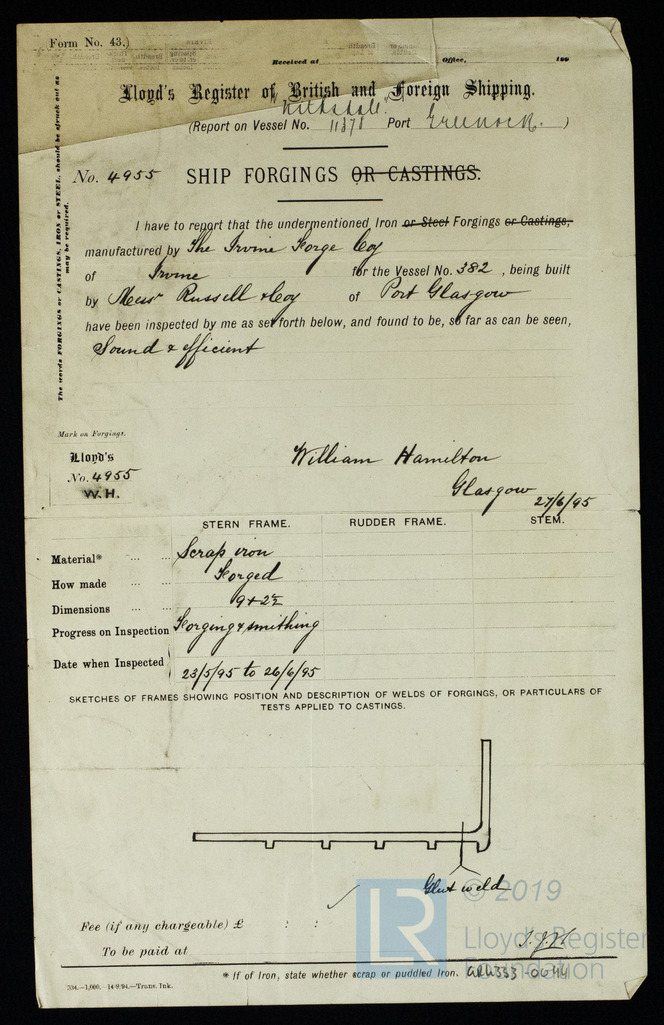 Form No. 43.)
Received at Office, 189
Lloyd's Register of British and Foreign Shipping.
"Nithsdale".
(Report on Vessel No. 11878 Port Greenock.)
No. 4955 SHIP FORGINGS OR CASTINGS.
The words FORGINGS or CASTINGS, IRON or STEEL, should be struck out as
may be required.
I have to report that the undermentioned Iron or Steel Forgings or Castings,
manufactured by The Irvine Forge Coy
of Irvine for the Vessel No. 382, being built
by Messrs Russell & Coy of Port Glasgow
have been inspected by me as set forth below, and found to be, so far as can be seen,
Sound & efficient
Mark on Forgings.
Lloyd's
No. 4955
W.H.
William Hamilton
Glasgow
27/6/95
STERN FRAME. RUDDER FRAME. STEM.
Material* ... ... Scrap iron
How made ... ... Forged
Dimensions ... ... 9 + 2½
Progress on Inspection Forging & smithing
Date when Inspected 23/5/95 to 26/6/95
SKETCHES OF FRAMES SHOWING POSITION AND DESCRIPTION OF WELDS OF FORGINGS, OR PARTICULARS OF
TESTS APPLIED TO CASTINGS.
Glut weld
© 2019
LR
Lloyd's Register
Foundation
Fee (if any chargeable) £ : :
To be paid at
* If of Iron, state whether scrap or puddled Iron. GRK333-0044
534.—1,000.—14/9/94.—Trans. Ink.